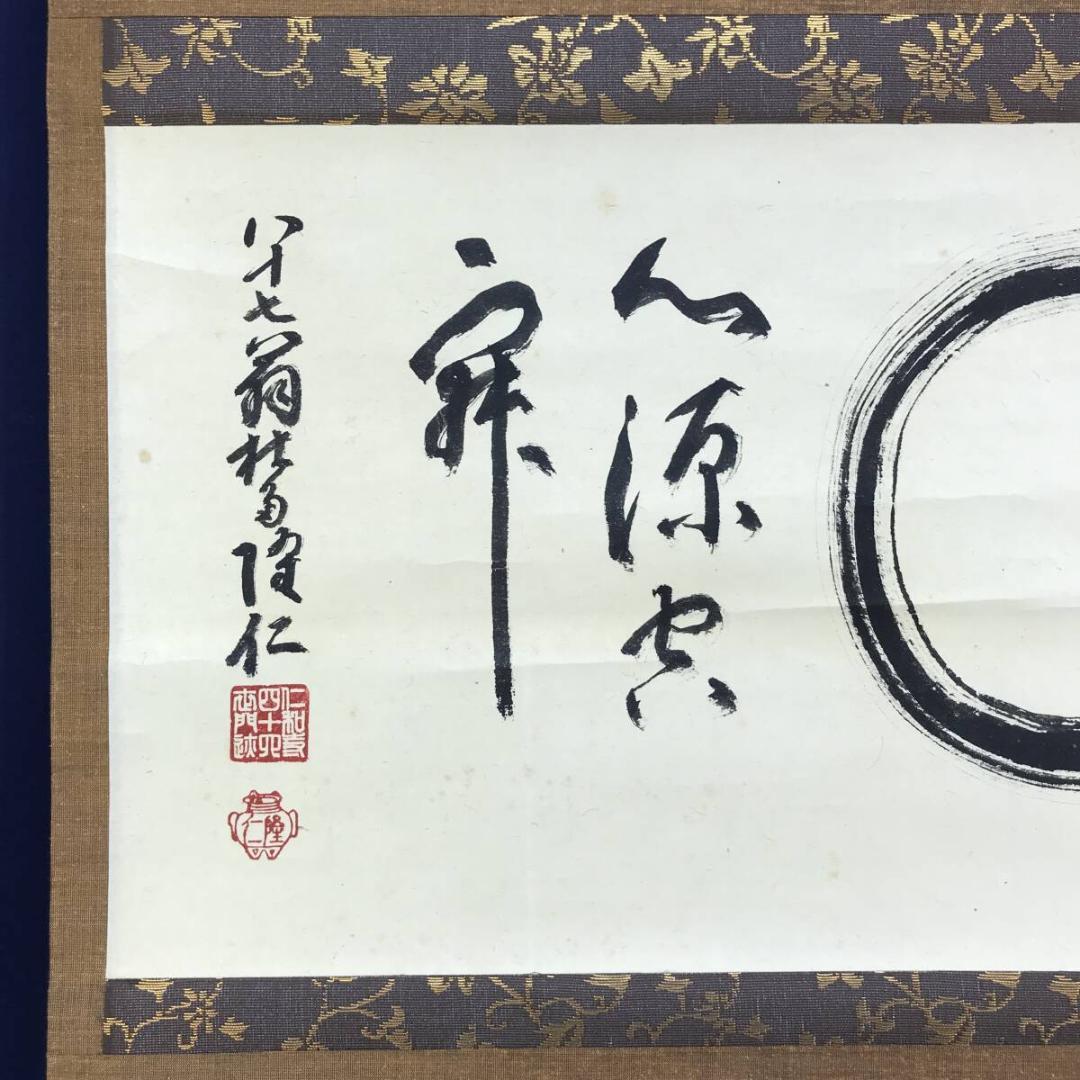 心源空
寂
八十七翁杜多隆仁
仁和寺
四十
世門跡
隆仁